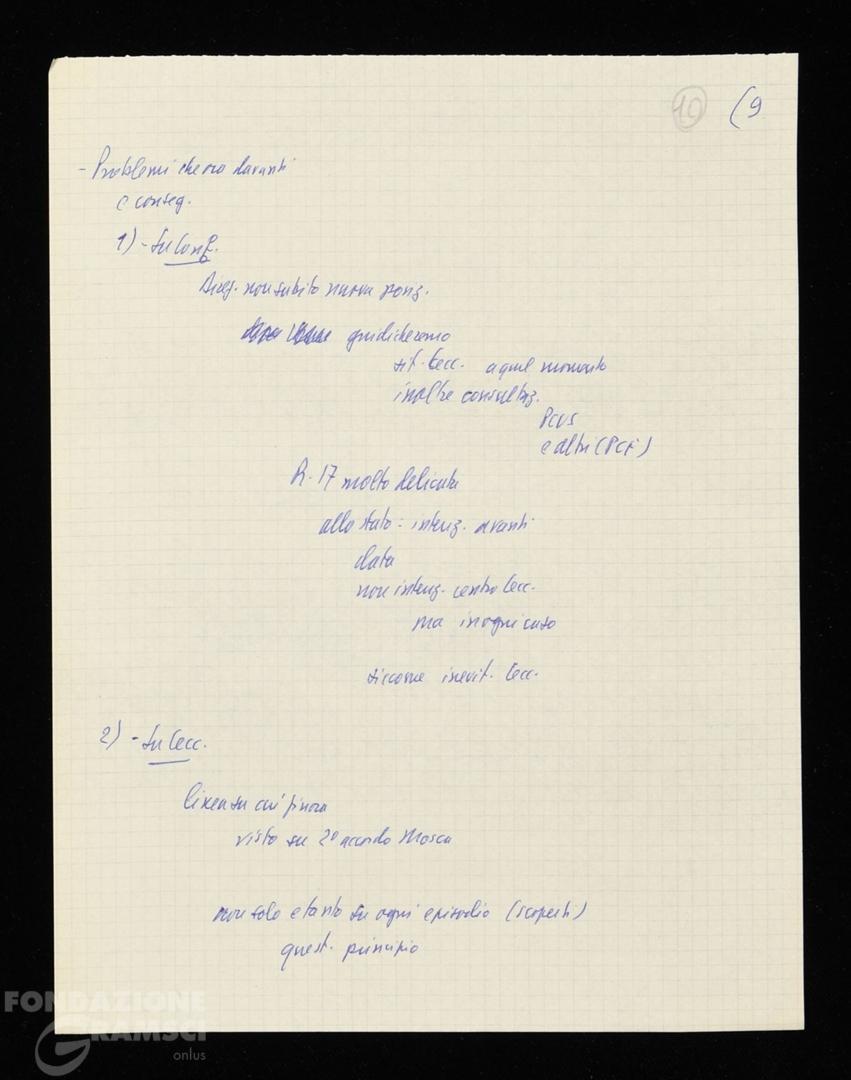 10 (9
- Problemi che ora davanti
e conseg.
1) - Su Conf.
Disc. non subito nuova
giudicheremo
sit. Cecc. a quel momento
inoltre consultaz.
PCUS
e altri (PCF)
R. 17 molto delicata
allo stato: intenz. avanti
data
non intenz. centro Cecc.
ma in ogni caso
siccome inevit. Cecc.
2) - Su Cecc.
linea su cui finora
visto su 2° accordo Mosca
non solo e tanto su ogni episodio (scoperti)
quest. principio
FONDAZIONE
GRAMSCI
onlus